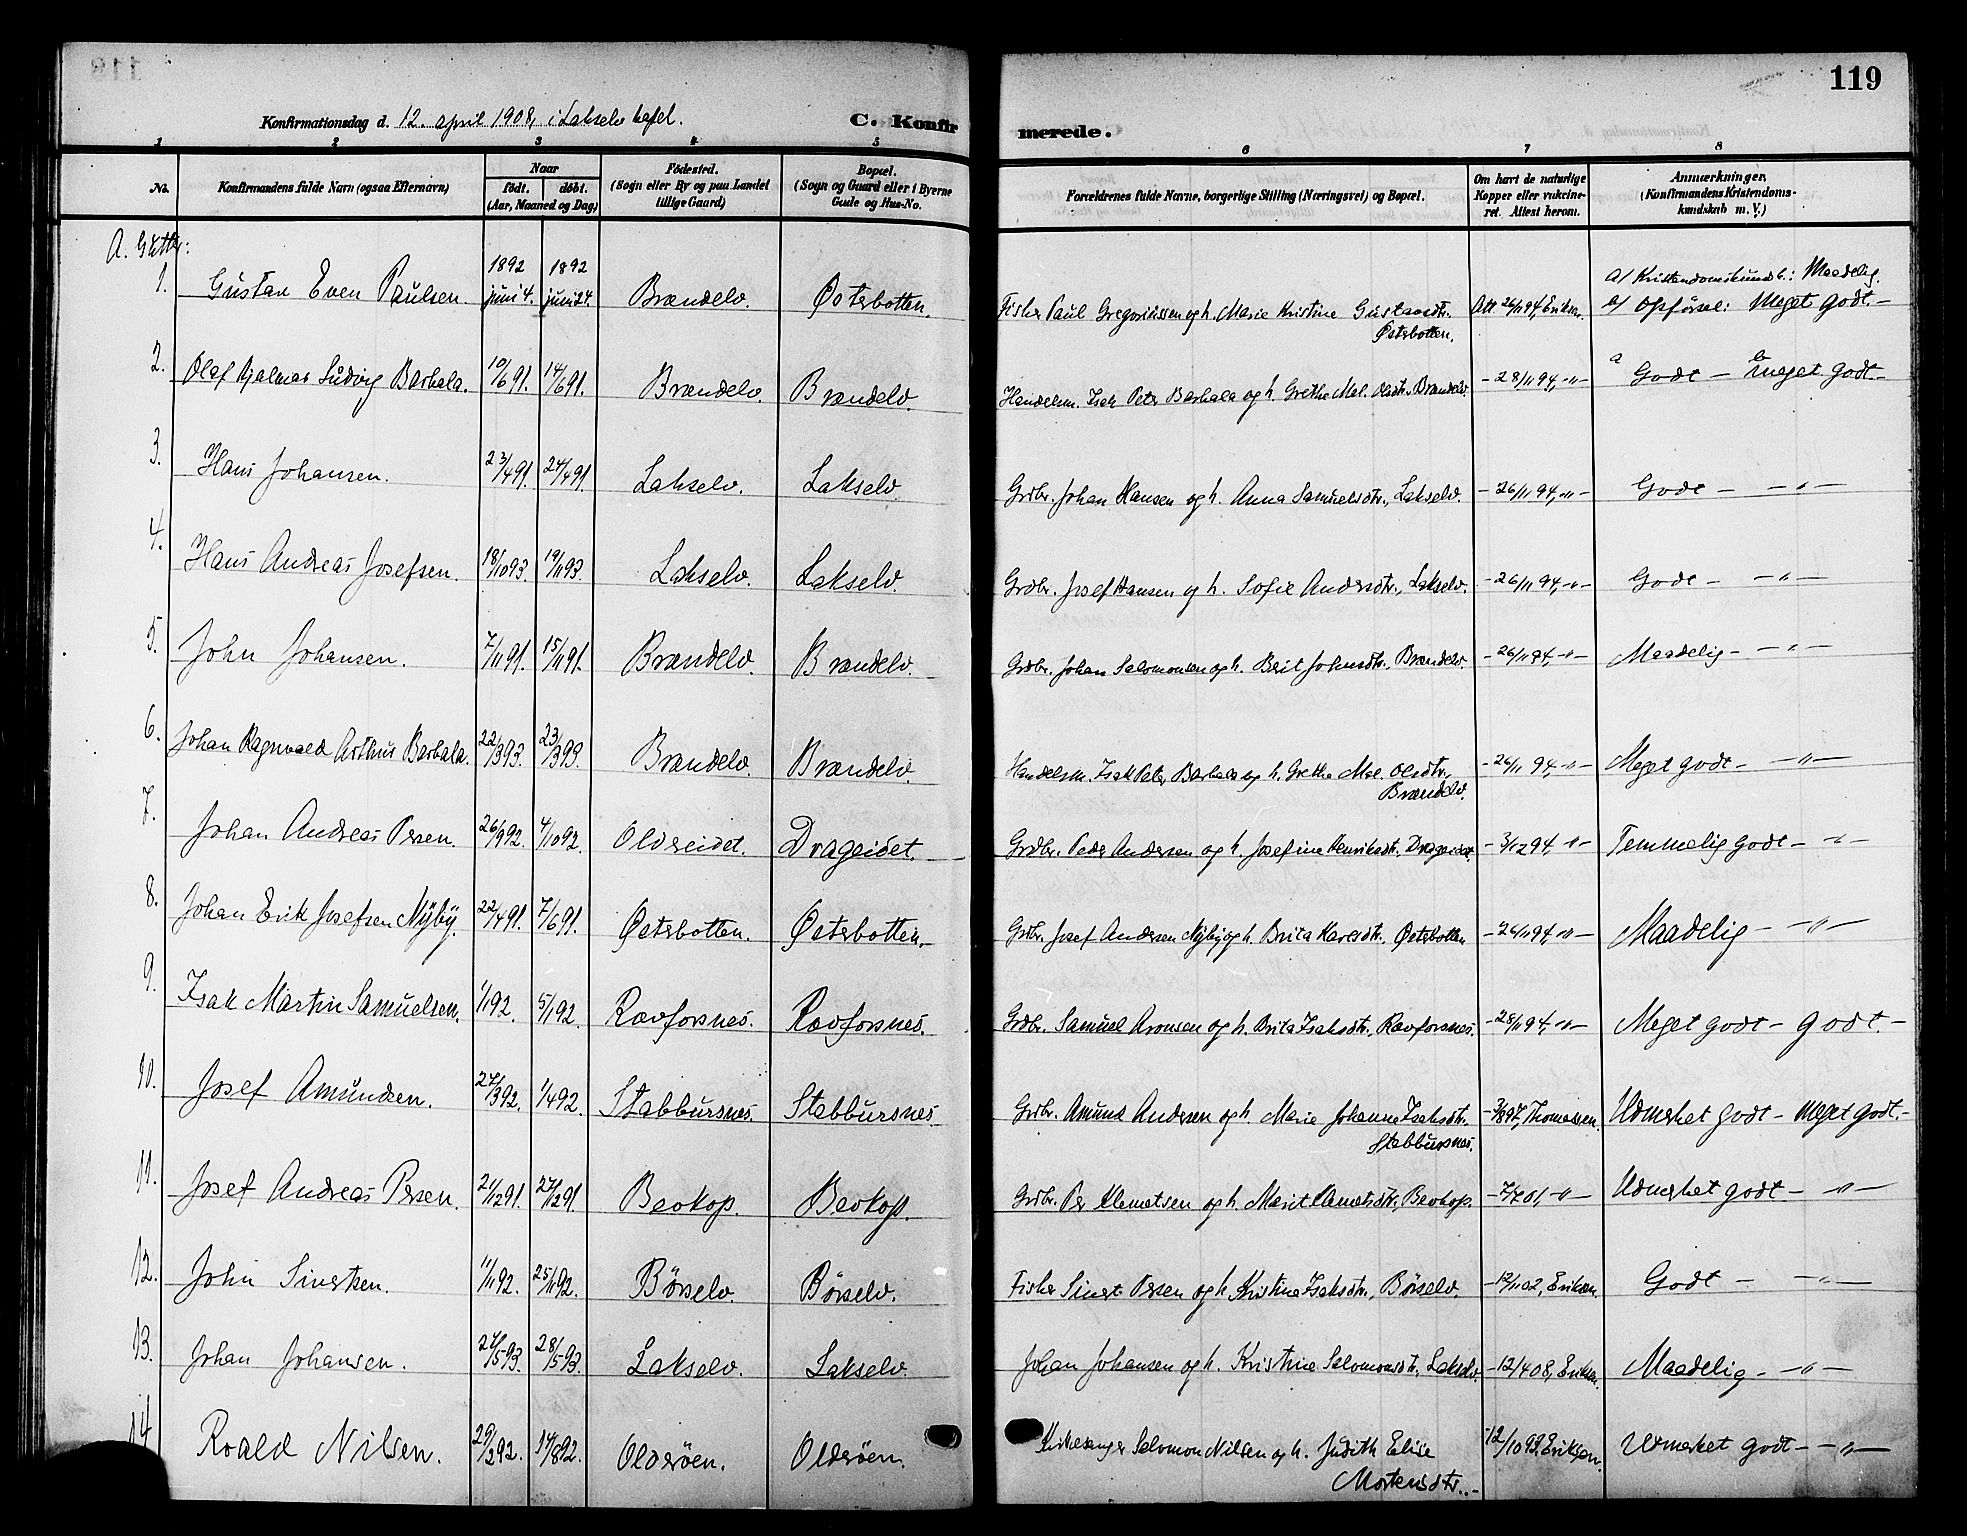 119
Konfirmationsdag d. 12. april 1908, i Lakselv kapel.
C. Konfirmerede.
1 2 3 4 5 6 7 8
No.
Konfirmandens fulde Navn (ogsaa Efternavn)
Naar
født. døbt.
(Aar, Maaned og Dag)
Fødested.
(Sogn eller By og paa Landet
tillige Gaard)
Bopæl.
(Sogn og Gaard eller i Byerne
Gade og Hus-No.
Forældrenes fulde Navne, borgerlige Stilling (Næringsvei) og Bopæl.
Om havt de naturlige
Kopper eller vakcine-
ret. Attest herom.
Anmærkninger.
(Konfirmandens Kristendoms-
kundskab m. V.)
A. Gutter:
1. Gustav Even Paulsen. 1892 juni 4. 1892 juni 24. Brændelv. Østerbotten. Fisker Paul Gregoriussen og h. Marie Kristine Gustavdtr. Østerbotten. Att. 26/11 94, Eriksen. a/ Kristendomskundsk.: Maadelig. b/ Opførsel: Meget godt.-
2. Olaf Hjalmar Ludvig Barhala. 10/6 91. 14/6 91. Brændelv. Brændelv. Handelsm. Isak Peter Barhala og h. Grethe Mal. Olsdtr. Brændelv. - 28/11 94, -"- a Godt - b meget godt.-
3. Hans Johansen. 23/4 91. 24/4 91. Lakselv. Lakselv. Grdbr. Johan Hansen og h. Anna Samuelsdtr., Lakselv. - 26/11 94, -"- Godt - -"-
4. Hans Andreas Josefsen. 18/10 93. 19/11 93. Lakselv. Lakselv. Grdbr. Josef Hansen og h. Sofie Andersdtr., Lakselv. - 26/11 94, -"- Godt - -"-
5. John Johansen. 7/11 91. 15/11 91. Brændelv. Brændelv. Grdbr. Johan Salomonsen og h. Berit Johnsdtr. Brændelv. - 26/11 94, -"- Maadelig - -"-
6. Johan Ragnvald Arthur Barhala. 22/3 93. 23/3 93. Brændelv. Brændelv. Handelsm. Isak Peter Barhala og h. Grethe Mal. Olsdtr., Brændelv. - 26/11 94, -"- Meget godt - -"-
7. Johan Andreas Persen. 26/9 92. 4/10 92. Oldereidet. Drageidet. Grdbr. Peder Andersen og h. Josefine Henriksdtr., Drageidet. - 3/12 94, -"- Temmelig godt - -"-
8. Johan Erik Josefsen Nÿbÿ. 22/4 91. 7/6 91. Østerbotten. Østerbotten. Grdbr. Josef Andersen Nÿbÿ og h. Brita Karesdtr. Østerbotten - 26/11 94, -"- Maadelig - -"-
9. Isak Martin Samuelsen. 1/1 92. 5/1 92. Rævforsnes. Rævforsnes. Grdbr. Samuel Aronsen og h. Brita Isaksdtr., Rævforsnes. - 28/11 94, -"- Meget godt - godt.-
10. Josef Amundsen. 27/3 92. 1/4 92. Stabbursnes. Stabbursnes. Grdbr. Amund Andersen og h. Marie Johanne Isaksdtr. Stabbursnes. - 3/8 97, Thomassen. Udmerket godt - meget godt.-
11. Josef Andreas Persen. 21/12 91. 27/12 91. Bevkop. Bevkop. Grdbr. Per Klemetsen og h. Marit Klemetsdtr., Bevkop. - 7/7 01, -"- Udmerket godt - -"-
12. John Sivertsen. 11/11 92. 25/11 92. Børselv. Børselv. Fisker Sivert Persen og h. Kristine Isaksdtr., Børselv. - 12/11 02, Eriksen. Godt - -"-
13. Johan Johansen. 27/5 93. 28/5 93. Lakselv. Lakselv. Johan Johansen og h. Kristine Salomonsdtr., Lakselv - 12/4 08, Eriksen. Maadelig - -"-
14 Roald Nilsen. 29/2 92. 14/8 92. Olderøen. Olderøen. Kirkesanger Salomon Nilsen og h. Judith Elise Mortensdtr.- - 12/10 92, Eriksen. Udmerket godt - -"-